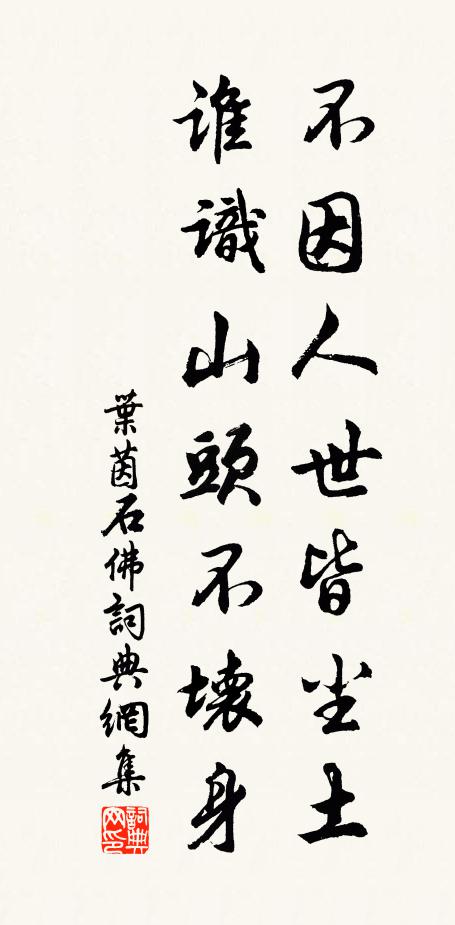 不因人世皆尘土
誰識山頭不壞身
葉茵石佛詞典網集
詞典网印